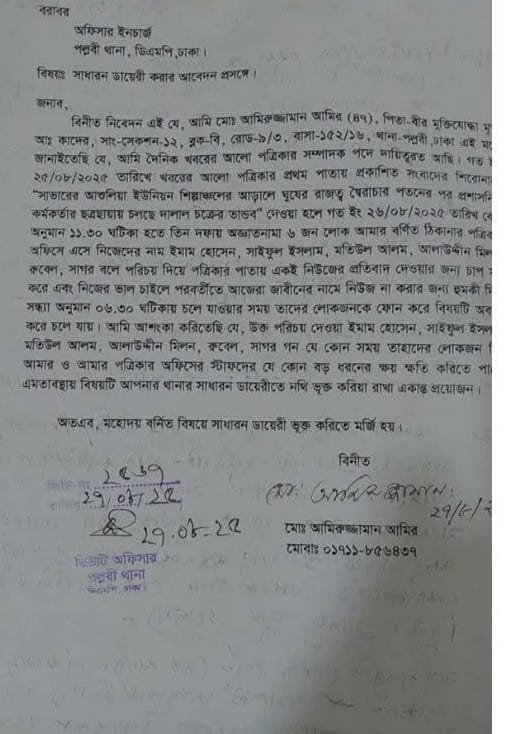 বরাবর
অফিসার ইনচার্জ
পল্লবী থানা, ডিএমপি,ঢাকা।
বিষয়ঃ সাধারন ডায়েরী করার আবেদন প্রসঙ্গে।
জনাব,
বিনীত নিবেদন এই যে, আমি মোঃ আমিরুজ্জামান আমির (৪৭), পিতা-বীর মুক্তিযোদ্ধা মৃ
আঃ কাদের, সাং-সেকশন-১২, ব্লক-বি, রোড-৯/৩, বাসা-১৫২/১৬, থানা-পল্লবী,ঢাকা এই ম
জানাইতেছি যে, আমি দৈনিক খবরের আলো পত্রিকার সম্পাদক পদে দায়িত্বরত আছি। গত
২৫/০৮/২০২৫ তারিখে খবরের আলো পত্রিকার প্রথম পাতায় প্রকাশিত সংবাদের শিরোনা
"সাভারের আশুলিয়া ইউনিয়ন শিল্পাঞ্চলের আড়ালে ঘুষের রাজত্ব স্বৈরাচার পতনের পর প্রশাসনি
কর্মকর্তার ছত্রছায়ায় চলছে দালাল চক্রের তান্ডব" দেওয়া হলে গত ইং ২৬/০৮/২০২৫ তারিখ বে
অনুমান ১১.৩০ ঘটিকা হতে তিন দফায় অজ্ঞাতনামা ৬ জন লোক আমার বর্ণিত ঠিকানার পত্রিক
অফিসে এসে নিজেদের নাম ইমাম হোসেন, সাইফুল ইসলাম, মতিউল আলম, আলাউদ্দীন মিল
রুবেল, সাগর বলে পরিচয় দিয়ে পত্রিকার পাতায় একই নিউজের প্রতিবাদ দেওয়ার জন্য চাপ
করে এবং নিজের ভাল চাইলে পরবর্তীতে আজেরা জাবীনের নামে নিউজ না করার জন্য হুমকী দি
সন্ধ্যা অনুমান ০৬.৩০ ঘটিকায় চলে যাওয়ার সময় তাদের লোকজনকে ফোন করে বিষয়টি অব
করে চলে যায়। আমি আশংকা করিতেছি যে, উক্ত পরিচয় দেওয়া ইমাম হোসেন, সাইফুল ইসল
মতিউল আলম, আলাউদ্দীন মিলন, রুবেল, সাগর গন যে কোন সময় তাহাদের লোকজন
আমার ও আমার পত্রিকার অফিসের স্টাফদের যে কোন বড় ধরনের ক্ষয় ক্ষতি করিতে পা
এমতাবস্থায় বিষয়টি আপনার থানার সাধারন ডায়েরীতে নথি ভূক্ত করিয়া রাখা একান্ত প্রয়োজন।
অতএব, মহোদয় বর্নিত বিষয়ে সাধারন ডায়েরী ভূক্ত করিতে মর্জি হয়।
বিনীত
২৫৬৭
২৭/০৮/২৫
২৭.০৮.২৫
মোঃ আমিরুজ্জামান
২৭/৮/২
মোঃ আমিরুজ্জামান আমির
মোবাঃ ০১৭১১-৮৫৬৪৩৭
ডিউটি অফিসার
পল্লবী থানা
ডিএমপি, ঢাকা।